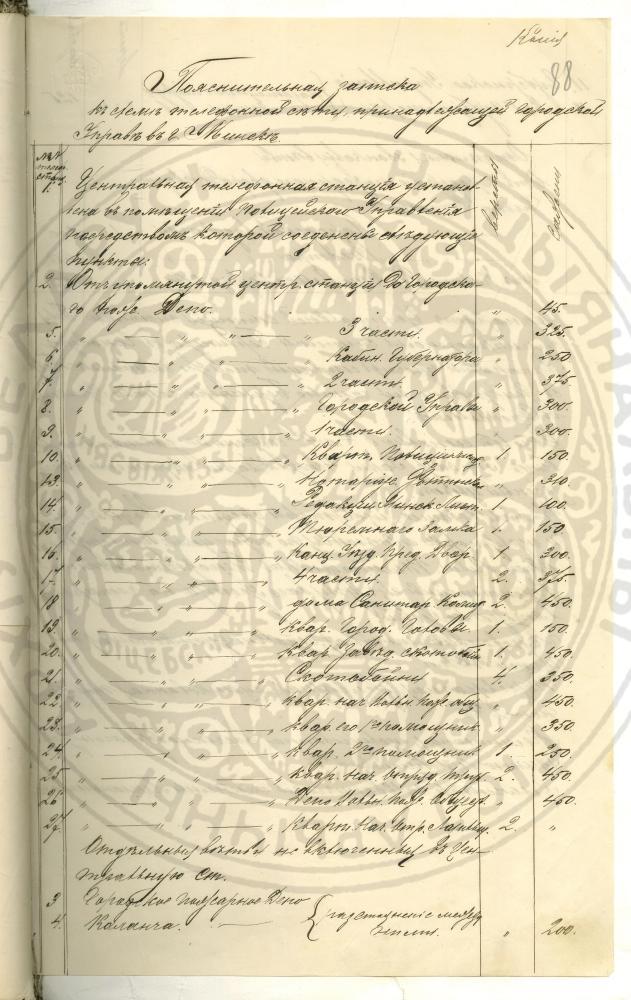 Копія
88
Пояснительная записка
къ схемѣ телефонной сѣти, принадлежащей Городской
Управѣ въ г. Минскѣ.
№№ станц. Версты Сажени
1. Центральная телефонная станція установ-
лена въ помѣщеніи Полицейскаго Управленія
посредствомъ которой соединены слѣдующіе
пункты:
2. Отъ упомянутой центр. станціи до Городска-
го пож. Депо. " 45.
5. " — " " — 3 части. " 325.
6. " — " " — Кабин. Губернатора " 250
7. " — " " — 2 части. " 375.
8. " — " " — Городской Управы " 300.
9. " — " " — 1 части. " 300.
10. " — " " — Кварт. Полицмейст. 1. 150
13. " — " " — Нотаріус. " 310
14. " — " " — Редакціи Минск. Лист. 1. 100.
15. " — " " — Тюремнаго Замка 1. 150
16. " — " " — Канц. Уѣзд. Пред. Двор. 1. 300.
17. " — " " — 4 части. 2. 375.
18 " — " " — дома Санитар. Комис. 2. 450.
19. " — " " — Квар. Город. Головы. 1. 150.
20. " — " " — Квар. Завѣд. скотобой. 1. 450.
21. " — " " — Скотобойни 4. 350.
22. " — " " — Квар. нач. Вольн. Пож. общ. " 450.
23. " — " " — Квар. его 1го помощник. " 350.
24. " — " " — Квар. 2го помощник. 1. 250.
25 " — " " — Квар. Нач. 2. 450.
26 " — " " — Депо Вольн. Пож. Общест. " 450.
27. " — " " — Кварт. Нач. 2. "
Отдѣльныя вѣтви не включенныя въ Цен-
тральную ст.
3 Городское Пожарное Депо
4. Каланча. — { разстояніе между
ними. " 200.